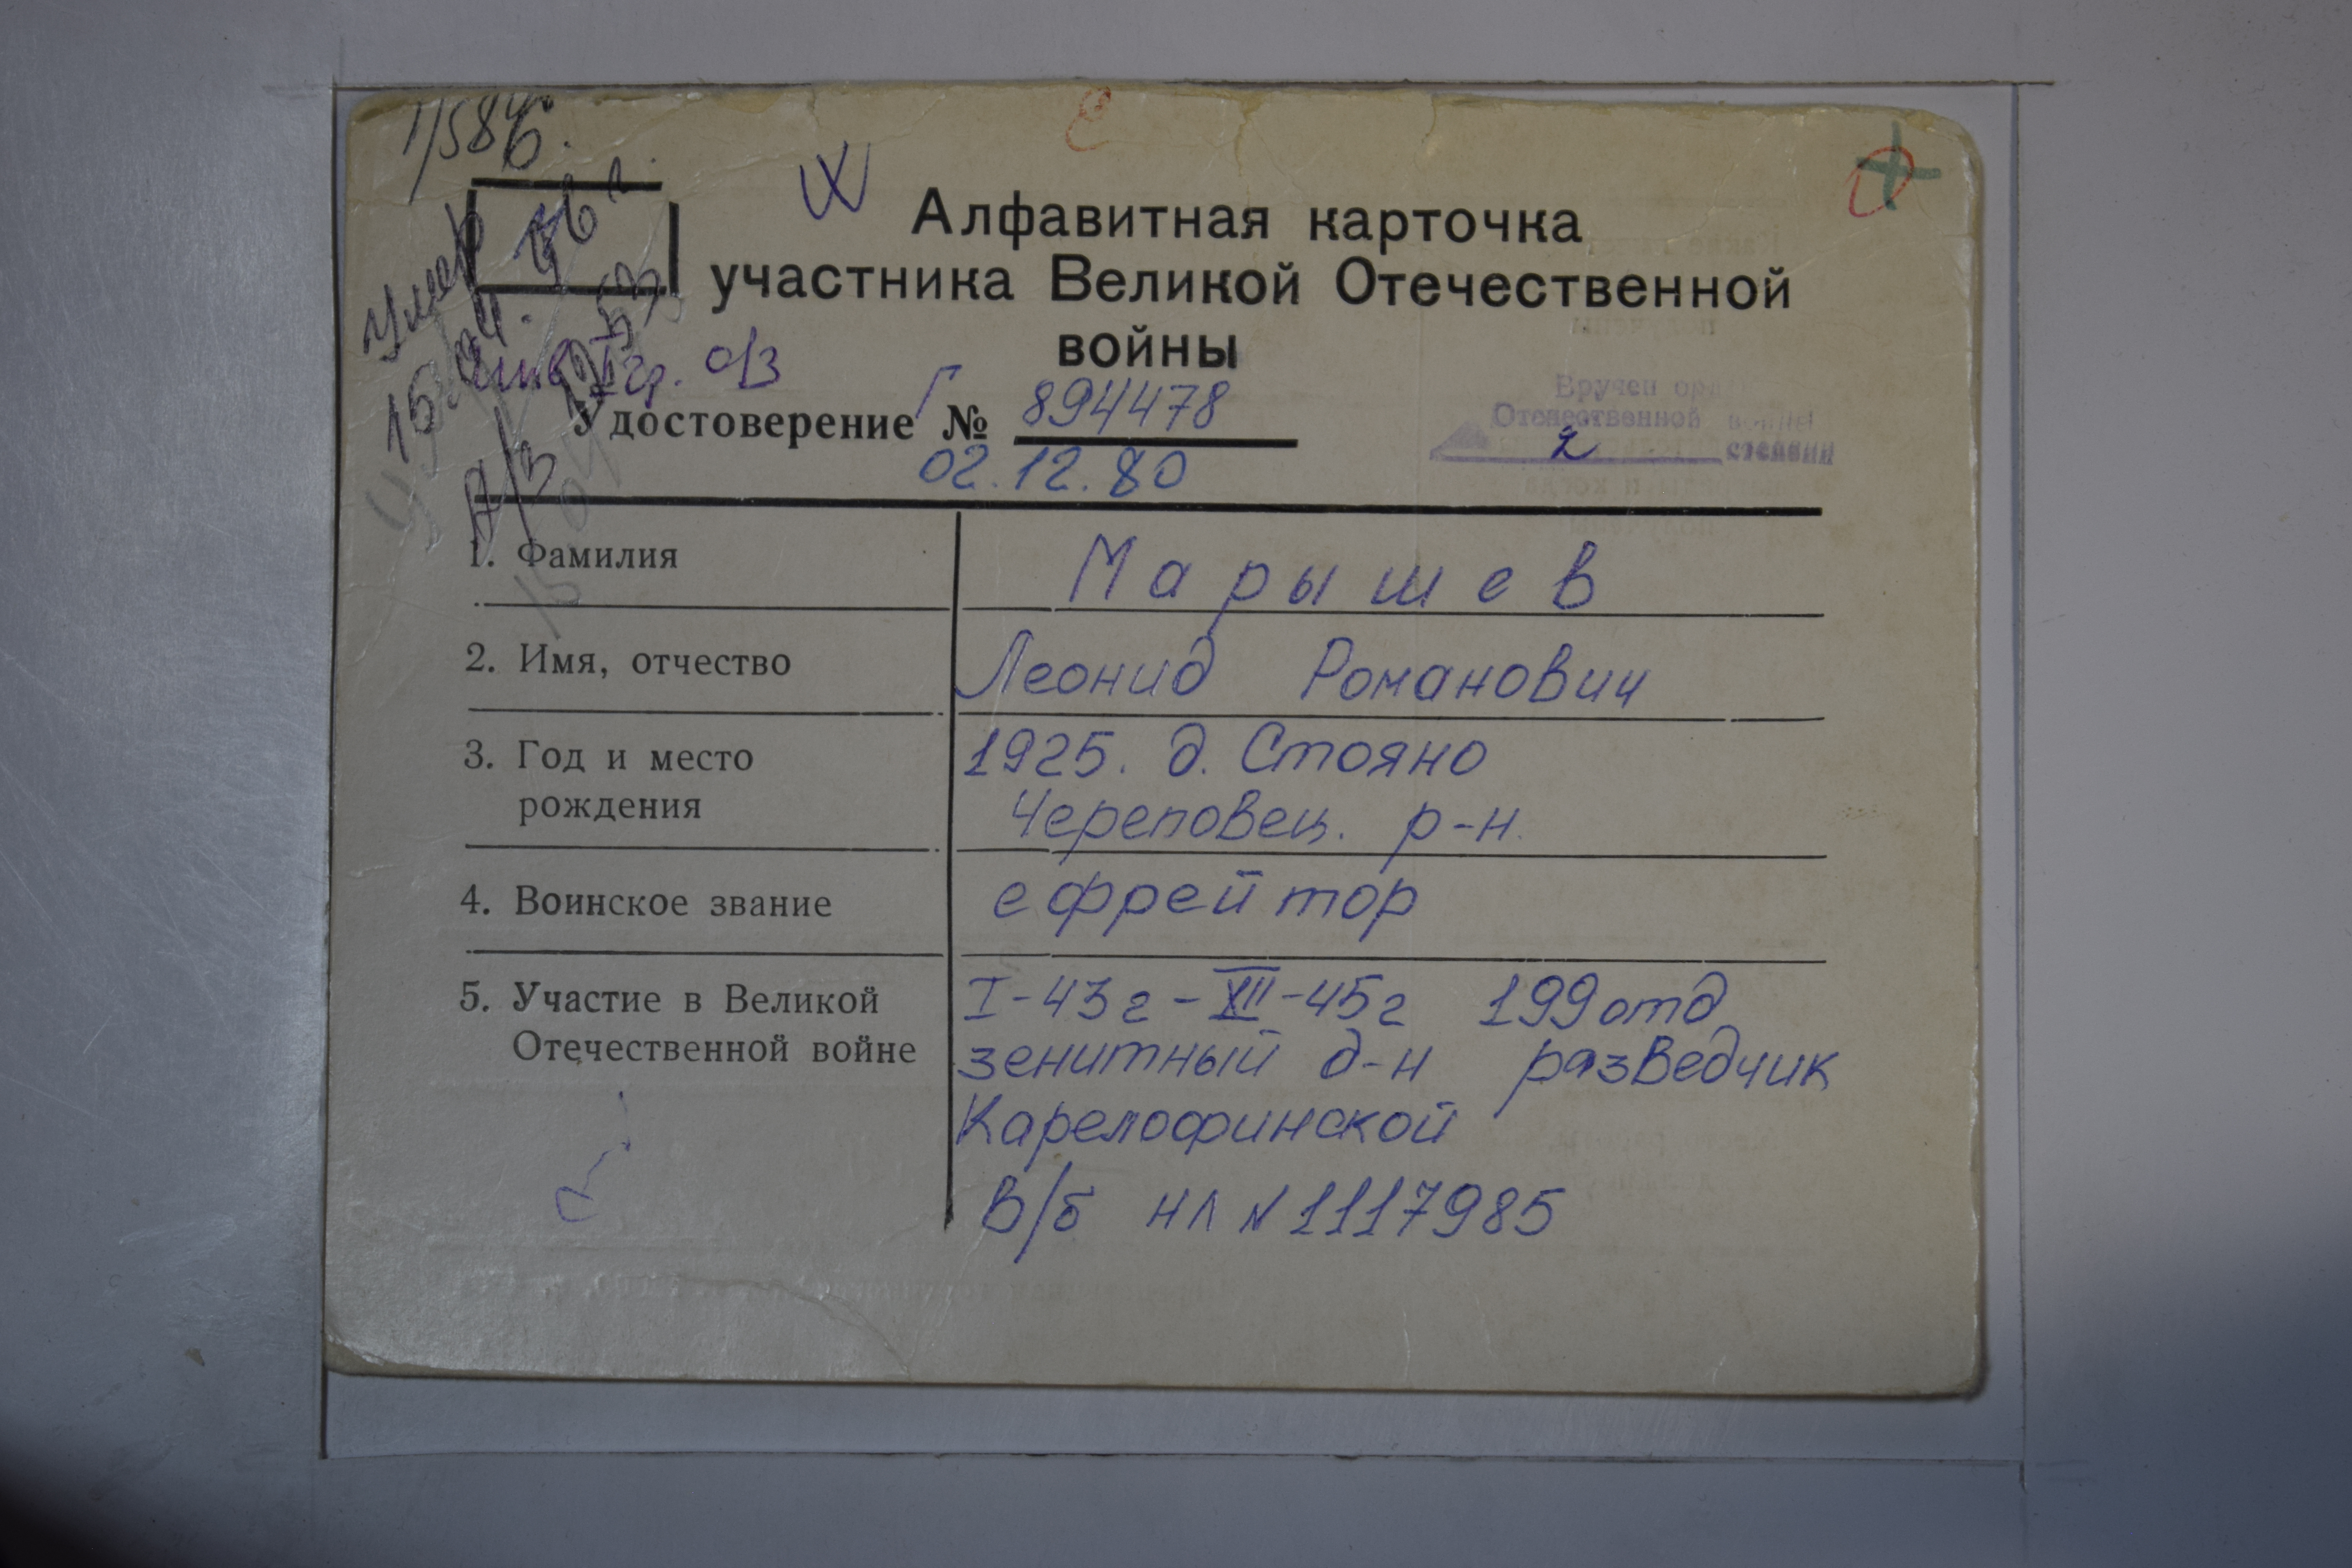 Алфавитная карточка
участника Великой Отечественной
войны
Умер
о/з
Удостоверение Г № 894478
02.12.80
Вручен орд
Отечественной войны
2 степени
1. Фамилия Марышев
2. Имя, отчество Леонид Романович
3. Год и место 1925. д. Стояно
рождения Череповец. р-н.
4. Воинское звание ефрейтор
5. Участие в Великой I-43г-XII-45г 199 отд
Отечественной войне зенитный д-н разведчик
Карелофинской
В/б НЛ N 1117985